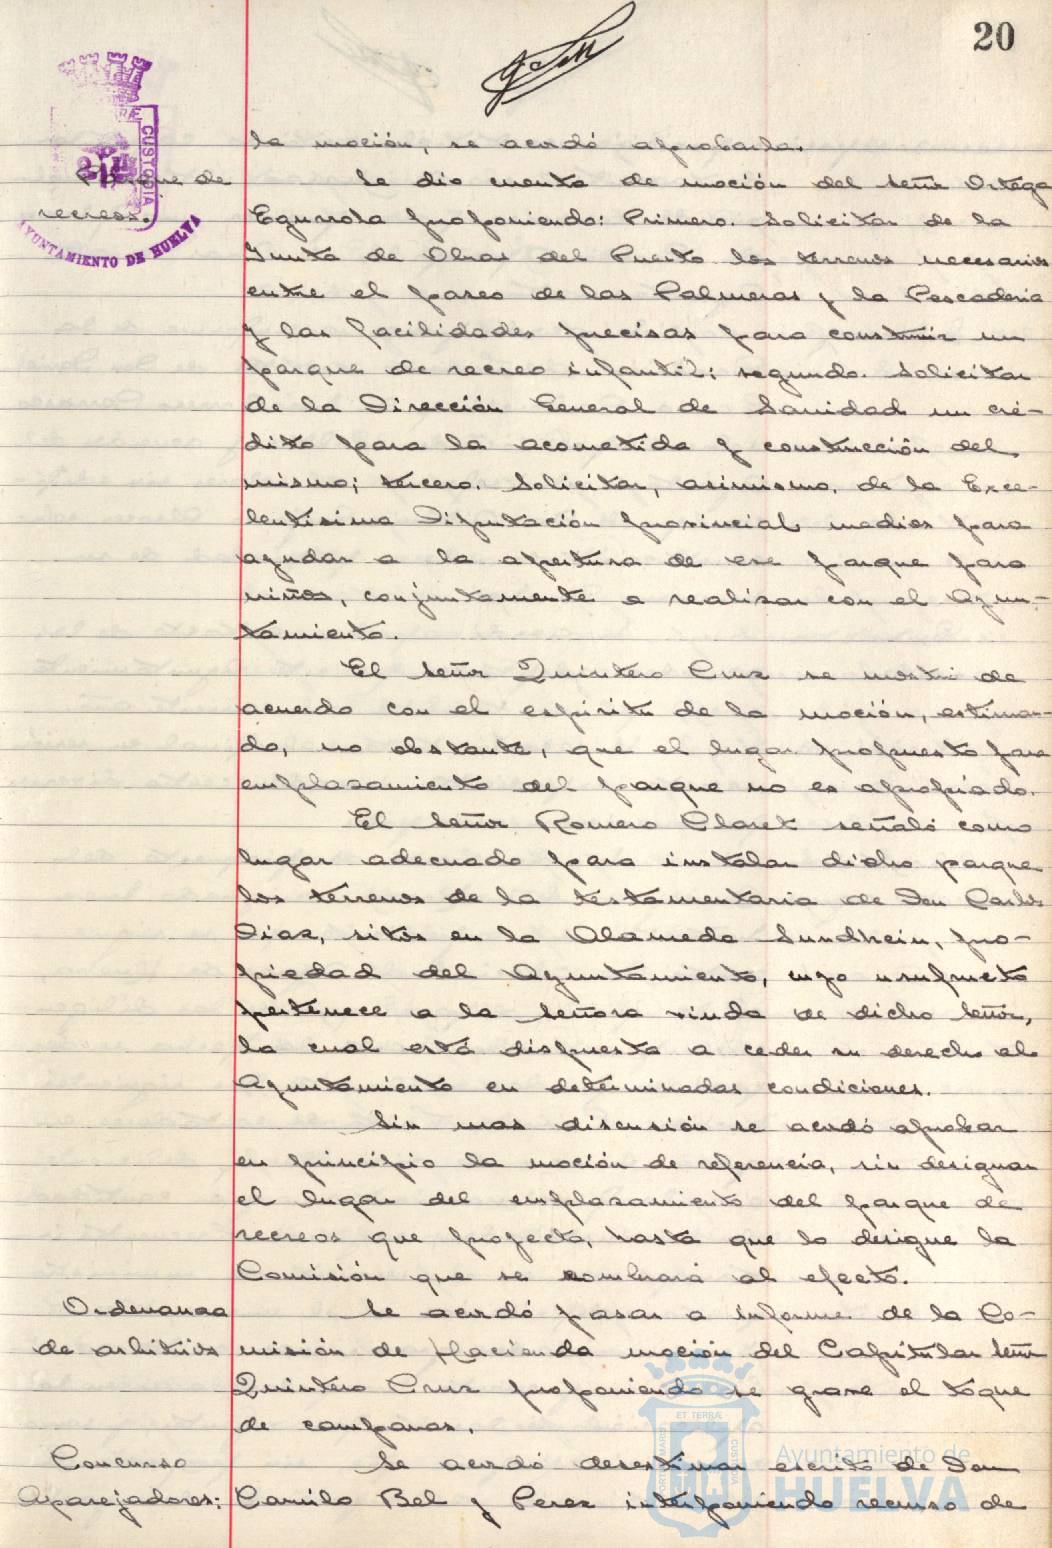 20
la moción, se acordó aprobarla.
Parque de
recreos.
Se dio cuenta de moción del señor Ortega
Egurrola proponiendo: Primero. Solicitar de la
Junta de Obras del Puerto los terrenos necesarios
entre el paseo de las Palmeras y la Pescaderia
y las facilidades precisas para construir un
parque de recreo infantil; segundo. Solicitar
de la Dirección General de Sanidad un cré-
dito para la acometida y construcción del
mismo; tercero. Solicitar, asimismo, de la Exce-
lentísima Diputación provincial medios para
ayudar a la apertura de ese parque para
niños, conjuntamente a realizar con el Ayun-
tamiento.
El señor Quintero Cruz se mostró de
acuerdo con el espíritu de la moción, estiman-
do, no obstante, que el lugar propuesto para
emplazamiento del parque no es apropiado.
El señor Romero Claret señaló como
lugar adecuado para instalar dicho parque
los terrenos de la testamentaria de Don Carlos
Diaz, sitos en la Alameda Sundhein, pro-
piedad del Ayuntamiento, cuyo usufructo
pertenece a la señora viuda de dicho señor,
la cual está dispuesta a ceder su derecho al
Ayuntamiento en determinadas condiciones.
Sin mas discusión se acordó aprobar
en principio la moción de referencia, sin designar
el lugar del emplazamiento del parque de
recreos que proyecta, hasta que lo designe la
Comisión que se nombrará al efecto.
Ordenanza
de arbitrios
Se acordó pasar a informe de la Co-
misión de Hacienda moción del Capitular señor
Quintero Cruz proponiendo se grave el toque
de campanas.
Concurso
Aparejadores:
Se acordó desestimar escrito de Don
Camilo Bel y Perez interponiendo recurso de
CUSTODIA
AYUNTAMIENTO DE HUELVA
ET TERRÆ
PORTUS MARIS
CUSTODIA
Ayuntamiento de
HUELVA